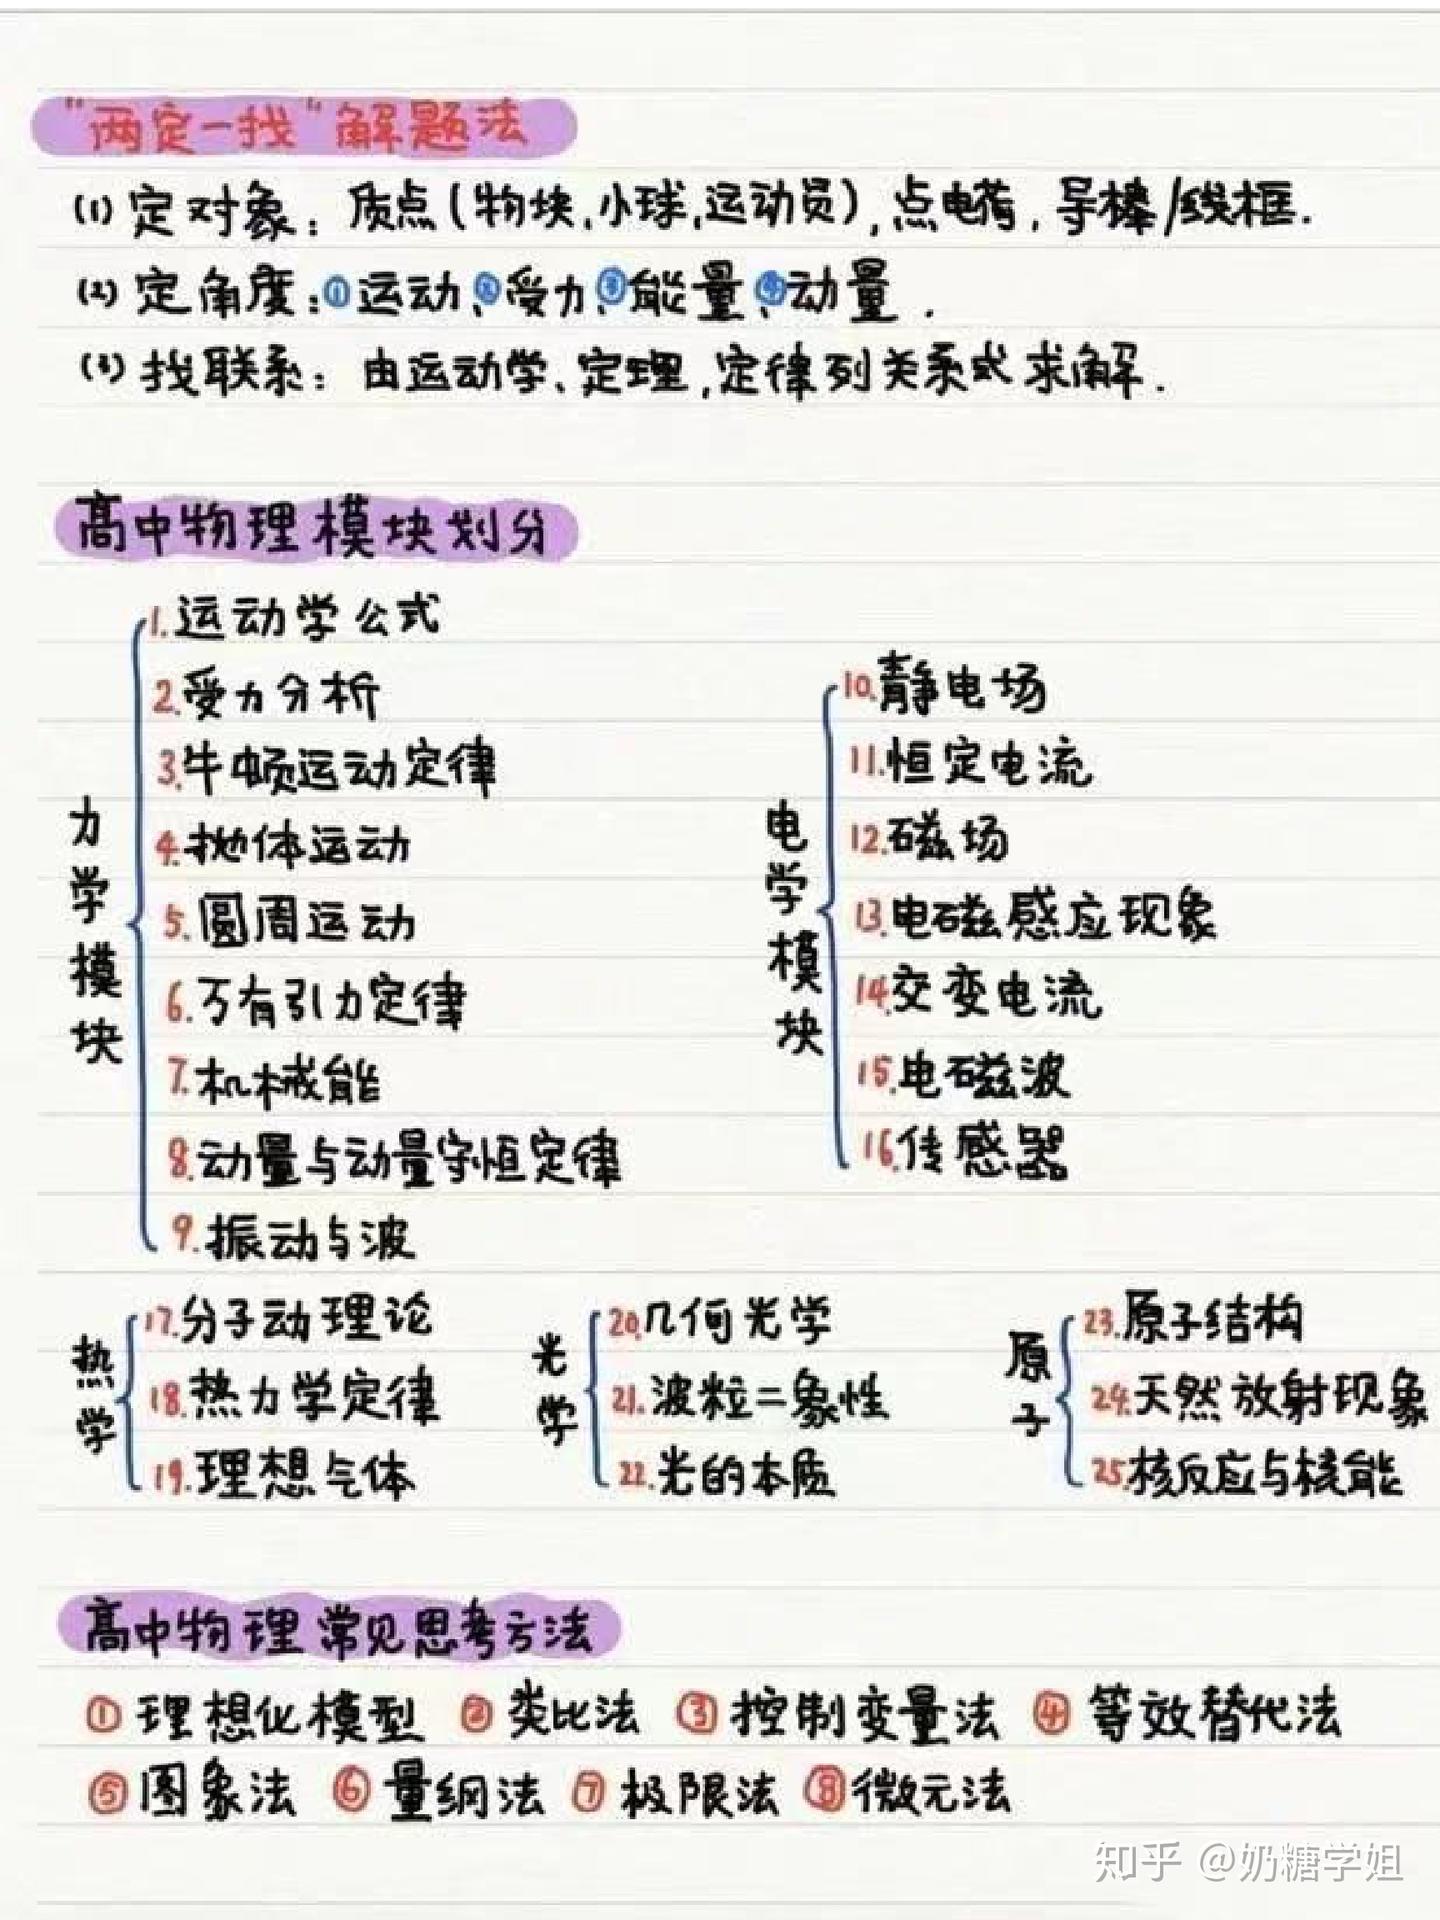 "两定一找"解题法
(1) 定对象：质点(物块,小球,运动员),点电荷,导棒/线框.
(2) 定角度：①运动、②受力、③能量、④动量.
(3) 找联系：由运动学、定理,定律列关系式求解.
高中物理模块划分
力学模块
1.运动学公式
2.受力分析
3.牛顿运动定律
4.抛体运动
5.圆周运动
6.万有引力定律
7.机械能
8.动量与动量守恒定律
9.振动与波
电学模块
10.静电场
11.恒定电流
12.磁场
13.电磁感应现象
14.交变电流
15.电磁波
16.传感器
热学
17.分子动理论
18.热力学定律
19.理想气体
光学
20.几何光学
21.波粒二象性
22.光的本质
原子
23.原子结构
24.天然放射现象
25.核反应与核能
高中物理常见思考方法
① 理想化模型 ② 类比法 ③ 控制变量法 ④ 等效替代法
⑤ 图象法 ⑥ 量纲法 ⑦ 极限法 ⑧ 微元法
知乎 @奶糖学姐